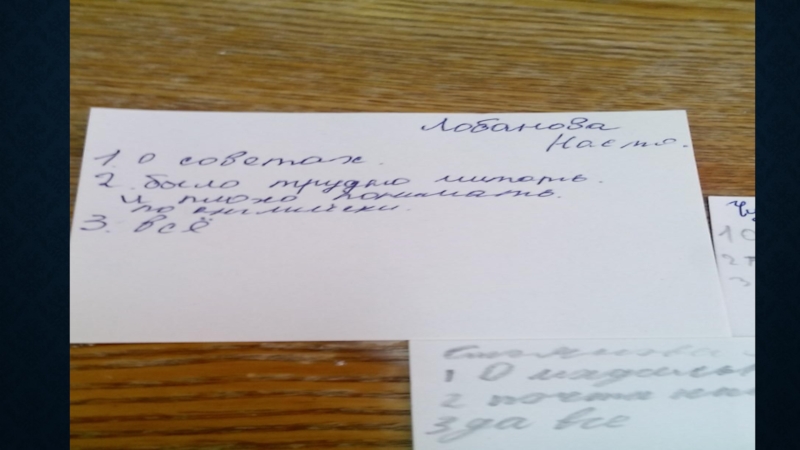 Лобанова
Настя.
1 О советах.
2. было трудно читать.
и плохо понимать
по английски.
3. всё
1 О
2
3
1 О
2 почта
3 да все